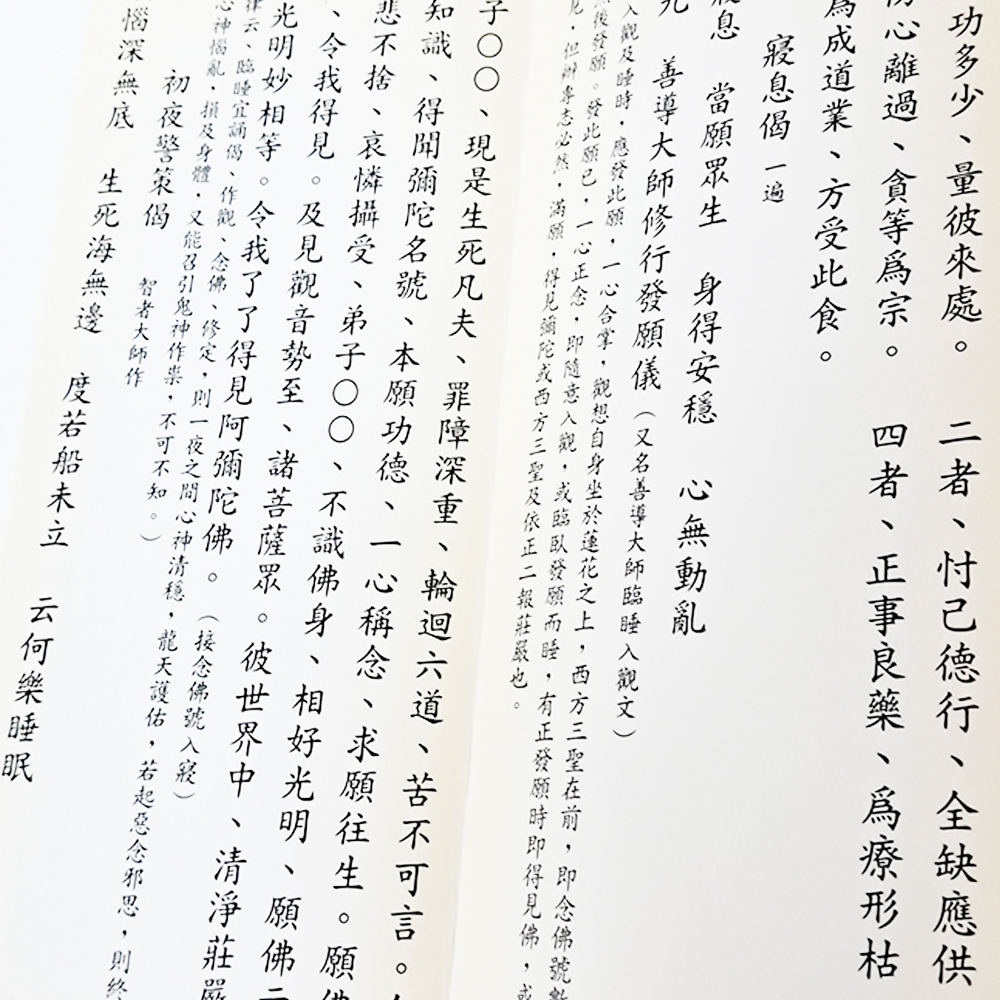 功多少、量彼來處。　二者、忖己德行、全缺應供
心離過、貪等爲宗。　四者、正事良藥、爲療形枯
爲成道業、方受此食。
寢息偈 一遍
寢息　當願眾生　身得安穩　心無動亂
善導大師修行發願儀（又名善導大師臨睡入觀文）
入觀及睡時，應發此願，一心合掌，觀想自身坐於蓮花之上，西方三聖在前，即念佛號數
然後發願。發此願已，一心正念，即隨意入觀，或臨臥發願而睡，有正發願時即得見佛，或
見，但辦專志必然，滿願，得見彌陀或西方三聖及依正二報莊嚴也。
子〇〇、現是生死凡夫、罪障深重、輪迴六道、苦不可言。
知識、得聞彌陀名號、本願功德、一心稱念、求願往生。願佛
悲不捨、哀憐攝受、弟子〇〇、不識佛身、相好光明、願佛
、令我得見。及見觀音勢至、諸菩薩眾。彼世界中、清淨莊嚴
光明妙相等。令我了了得見阿彌陀佛。（接念佛號入寢）
律云、臨睡宜誦偈、作觀、念佛、修定，則一夜之間心神清穩，龍天護佑，若起惡念邪思，則終
心神惱亂，損及身體，又能召引鬼神作祟，不可不知。）
初夜警策偈　智者大師作
惱深無底　生死海無邊　度若船未立　云何樂睡眠